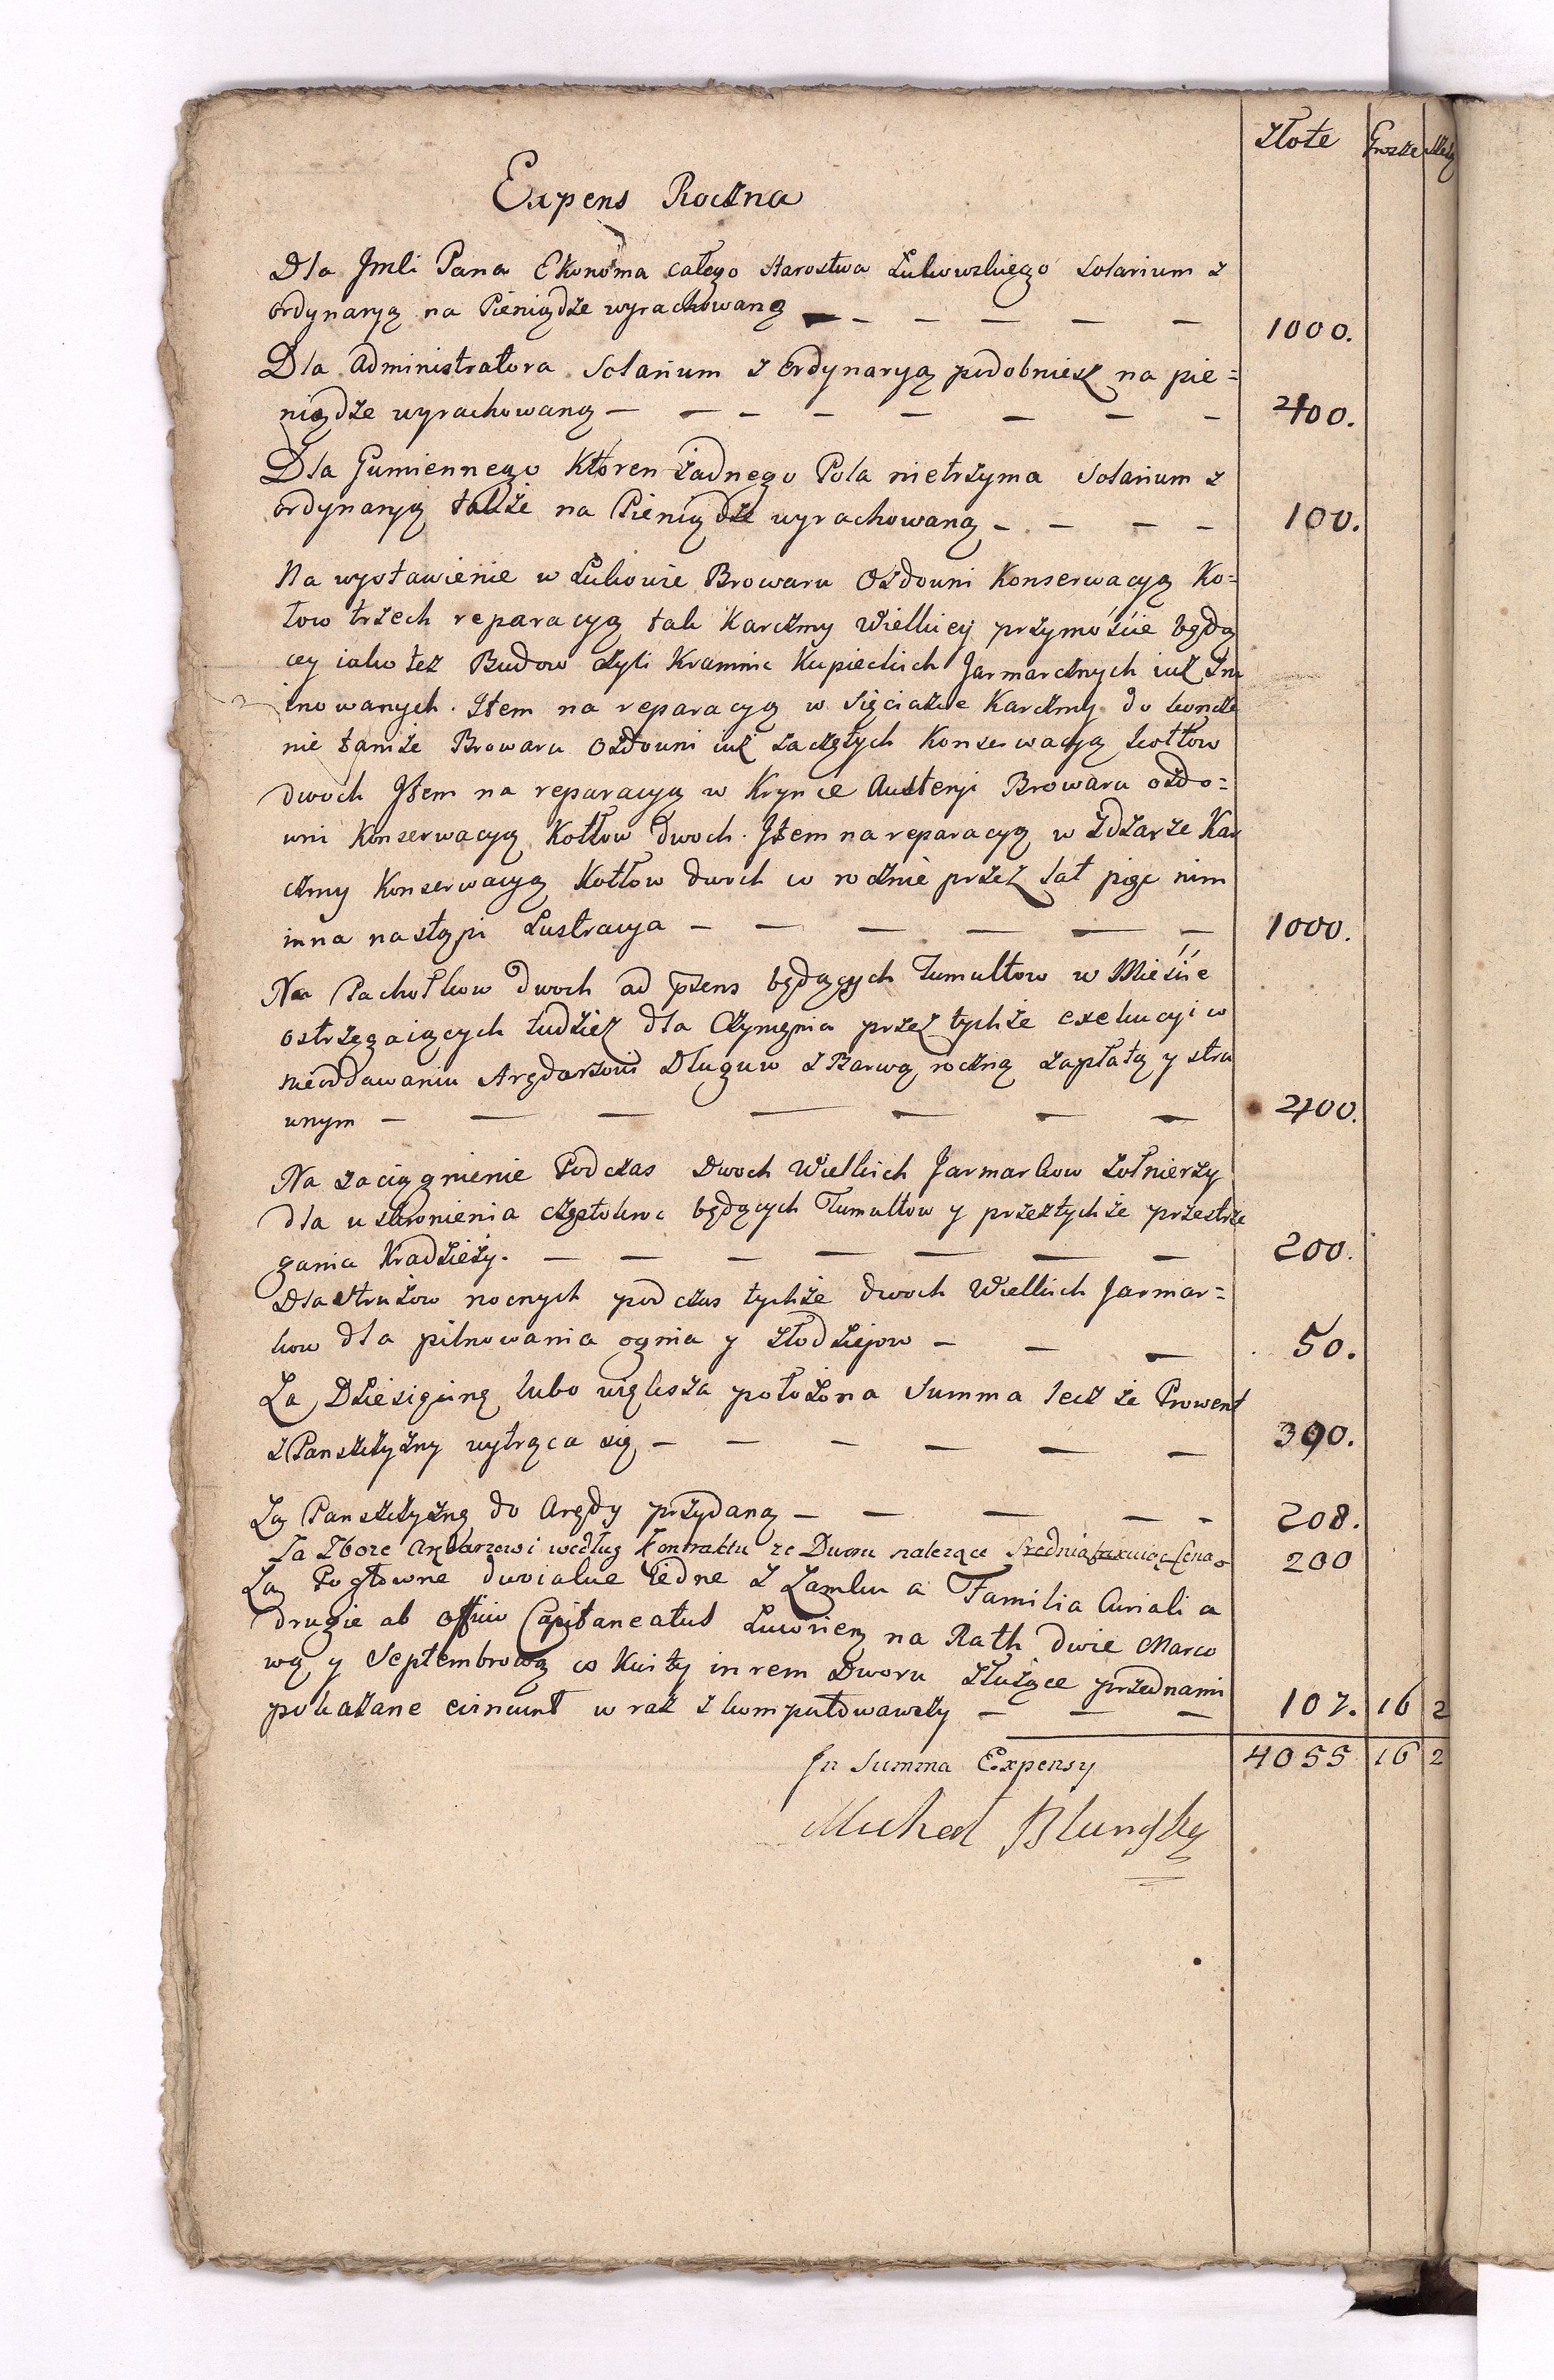 Złote Grosze Szelą
Expens Roczna
Dla Jmci Pana Ekonoma całego Starostwa Łukowskiego Solarium z
ordynaryą na Pieniądze wyrachowaną — — — — — — 1000.
Dla Administratora Solarium z Ordynaryą podobniesz na pie=
niądze wyrachowaną — — — — — — — — 400.
Dla Gumiennego Ktoren żadnego Pola nietrzyma Solarium z
ordynaryą także na Pieniądze wyrachowaną — — — — 100.
Na wystawienie w Łukowie Browaru Ozdowni Konserwacyą Ko=
tłow trzech reparacyą tak Karczmy Wielkiey przymoście będą
cey iako też Budow czyli Kramnic Kupieckich Jarmarcznych iuż zru
inowanych. Item na reparacyą w Sięciaszce Karczmy dokoncze
nie tamże Browaru Ozdowni iuż zaczętych Konserwacyą kotłow
dwoch Item na reparacyą w Krynce Austeryi Browaru ozdo=
wni Konserwacyą Kotłow dwoch. Item na reparacyą w Zdżarze Kar
czmy Konserwacyą Kotłow dwoch co rocznie przez lat pięc nim
inna nastąpi Lustracya — — — — — — 1000.
Na Pachołkow dwoch ad przens będących Tumultow w Mieście
ostrzegaiących tudziesz dla Czynienia przez tychże exekucyi w
nieoddawaniu Arędarzowi Długuw z Barwą roczną zapłatą y stra
wnym — — — — — — — 400.
Na zaciągnienie Podczas Dwoch Wielkich Jarmarkow Żołnierzy
dla uskromienia częstokroc będących Tumultow y przeztychże przestrze
gania Kradzieży. — — — — — — — 200.
Dla Strużow nocnych podczas tychże dwoch Wielkich Jarmar=
kow dla pilnowania ognia y złodziejow — — — 50.
Za Dziesięcinę lubo większa położona Summa lecz że Prowent
z Panszczyzny wytrąca się — — — — — — 390.
Za Panszczyznę do Arędy przydaną — — — — — 208.
Za Zboze Arędarzowi według Kontraktu ze Dworu nalezące Srednią taxuiąc Cena 200
Za Pogłowne dwoiakie Iedne z Zamku a Familia Curiali a
drugie ab officio Capitaneatus Lucoviens na Rath dwie Marco
wą y Septembrową co Kwity in rem Dworu służące przednami
pokazane evincunt wraz zkomputowawszy — — — 107. 16 2
In Summa Expensy 4055 16 2